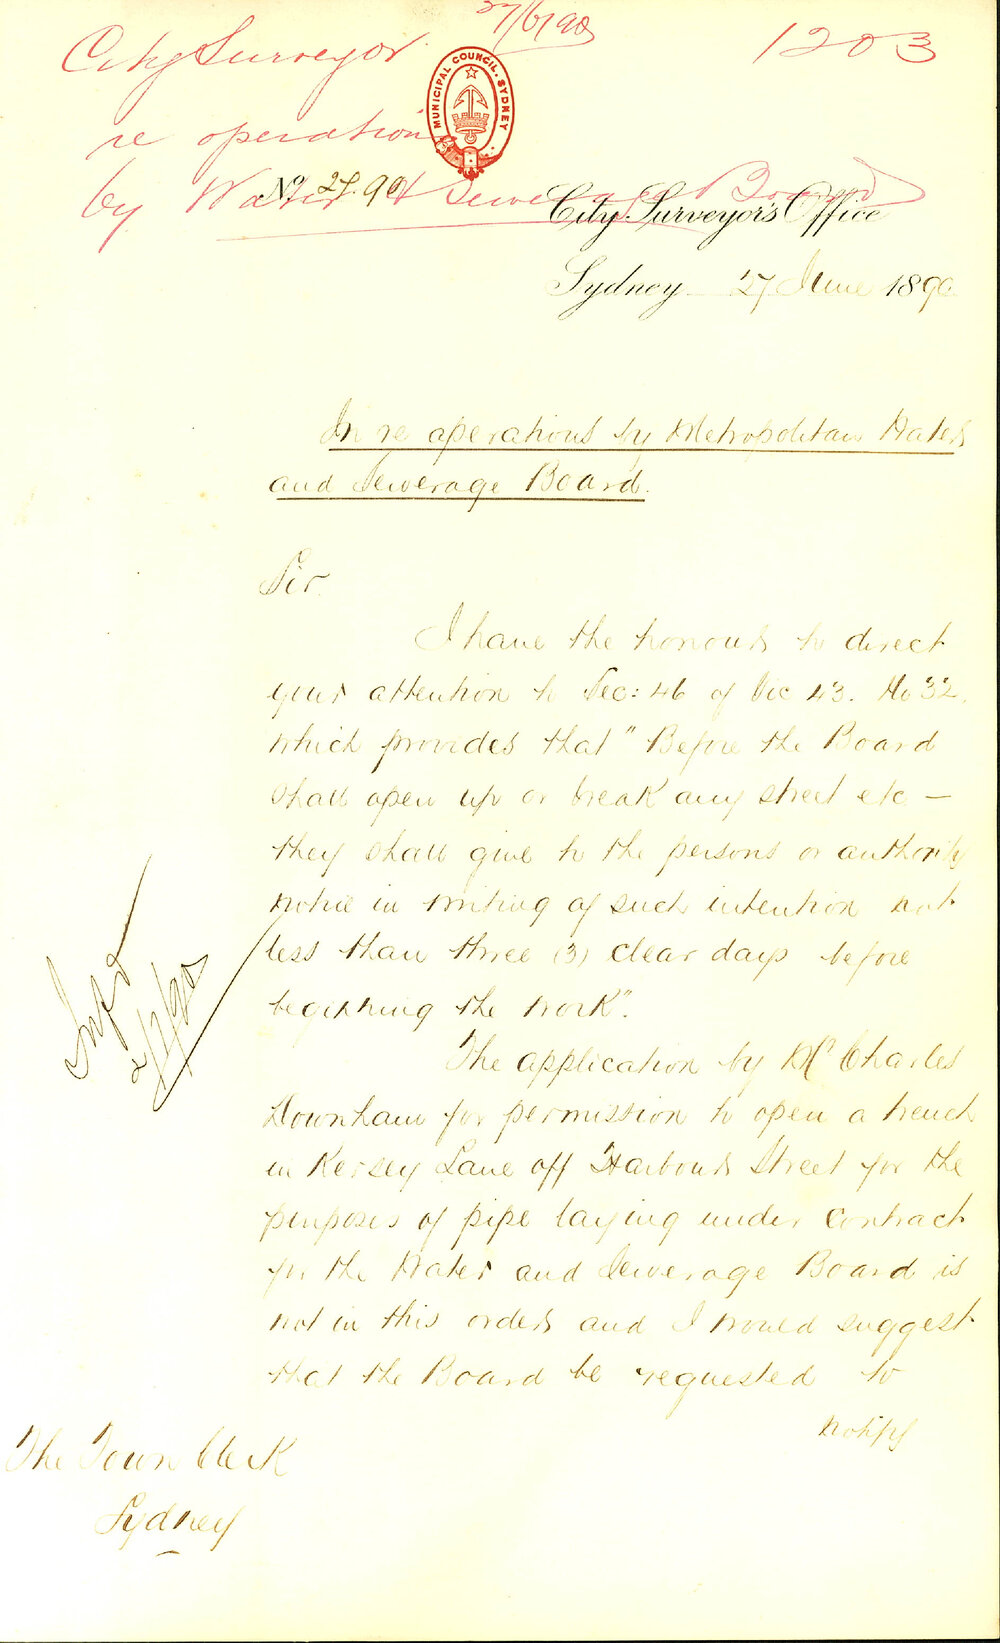 27/6/90
City Surveyor
1203
re operation
by Water & Sewerage Board
MUNICIPAL COUNCIL. SYDNEY
No. 27.90
City Surveyor's Office
Sydney 27 June 1890
In re operations by Metropolitan Water
and Sewerage Board.
Sir
I have the honour to direct
your attention to Sec: 46 of Vic 43. No 32.
which provides that "Before the Board
shall open up or break any street etc —
they shall give to the persons or authority
notice in writing of such intention not
less than three (3) clear days before
beginning the work".
The application by Mr Charles
Downham for permission to open a trench
in Kersey Lane off Harbour Street for the
purposes of pipe laying under contract
for the Water and Sewerage Board is
not in this order and I would suggest
that the Board be requested to
notify
The Town Clerk
Sydney
2/7/90